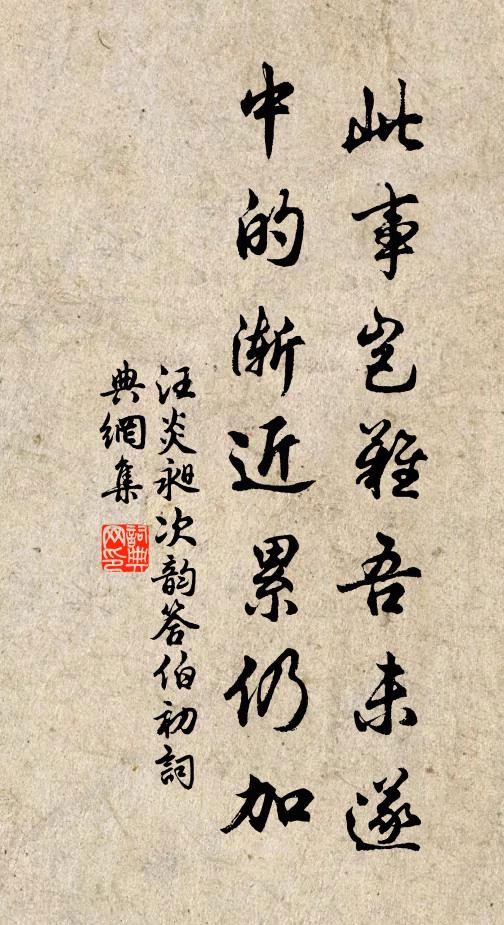 此事岂難吾未遂
中的渐近累仍加
汪炎昶次韵答伯初詞
典網集
詞典
网印